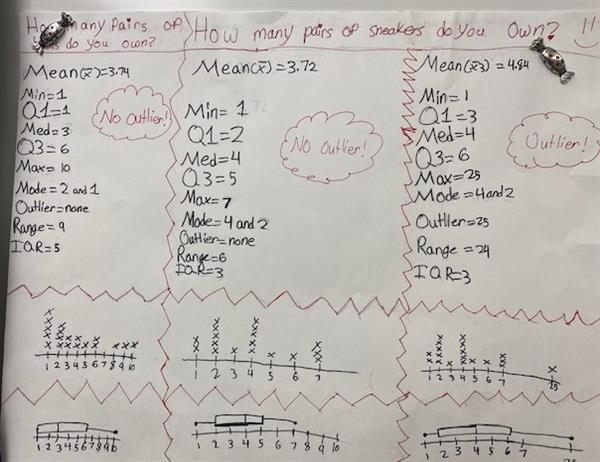 How many Pairs of
do you own?
Mean(x̄)=3.74
Min=1
Q1=1
Med=3
Q3=6
Max=10
Mode=2 and 1
Outlier=none
Range=9
IQR=5
No Outlier!
1 2 3 4 5 6 7 8 9 10
1 2 3 4 5 6 7 8 9 10
How many pairs of sneakers do you Own? !!
Mean(x̄)=3.72
Min=1
Q1=2
Med=4
Q3=5
Max=7
Mode=4 and 2
Outlier=none
Range=6
IQR=3
No Outlier!
1 2 3 4 5 6 7
1 2 3 4 5 6 7 8 9 10
Mean(x̄3)=4.84
Min=1
Q1=3
Med=4
Q3=6
Max=25
Mode=4 and 2
Outlier=25
Range=24
IQR=3
Outlier!
1 2 3 4 5 6 7 25
1 2 3 4 5 6 7